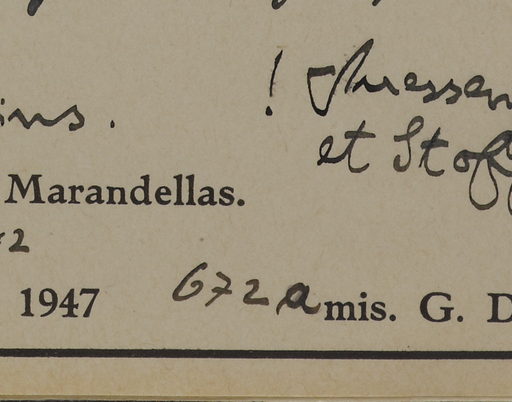 ! Thuessen
ins.
et Stoff
Marandellas.
2
1947 672a mis. G. D